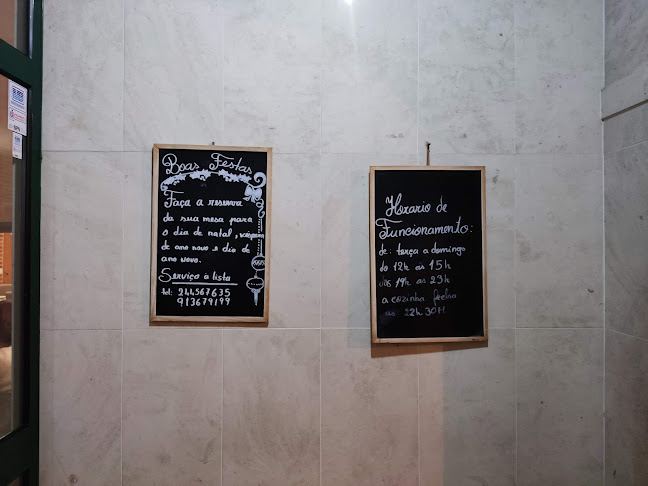 Boas Festas
Faça a reserva
da sua mesa para
o dia de natal, véspera
de ano novo e dia de
ano novo.
Serviço à lista
tel: 244567635
913679199
Horario de
Funcionamento:
de: terça a domingo
do 12h às 15h
das 19h às 23h
a cozinha fecha
às 22h 30M